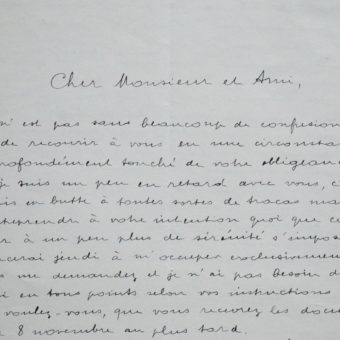 Cher Monsieur et Ami,
n'est pas sans beaucoup de confusion
de recourir à vous en une circonstan
rofondément touché de votre obligean
je suis un peu en retard avec vous, c
is en butte à toutes sortes de tracas ma
treprendre à votre intention quoi que c
r à un peu plus de sérénité s'impos
cerai jeudi à m'occuper exclusivemen
s me demandez et je n'ai pas besoin d
i en tous points selon vos instructions
voulez-vous, que vous recevrez les docu
r 8 novembre au plus tard.